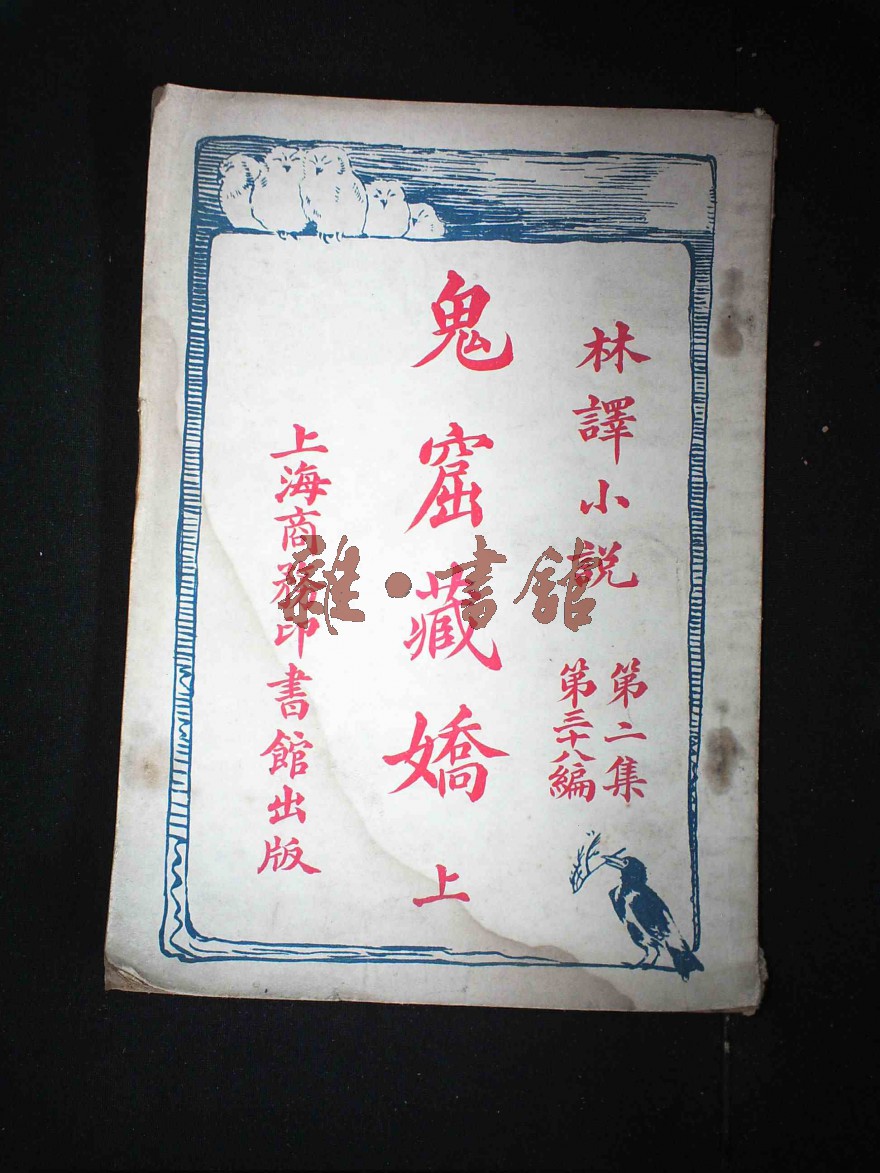 林譯小説
第二集
第三十八編
鬼窟藏嬌 上
上海商務印書館出版
雜·書館